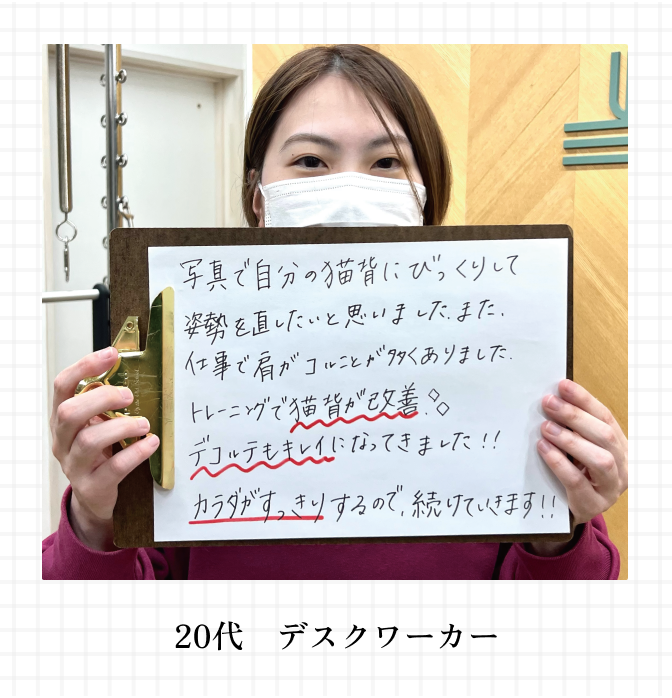 写真で自分の猫背にびっくりして
姿勢を直したいと思いました。また、
仕事で肩がコルことが多くありました。
トレーニングで猫背が改善!
デコルテもキレイになってきました!!
カラダがすっきりするので、続けていきます!!
20代　デスクワーカー